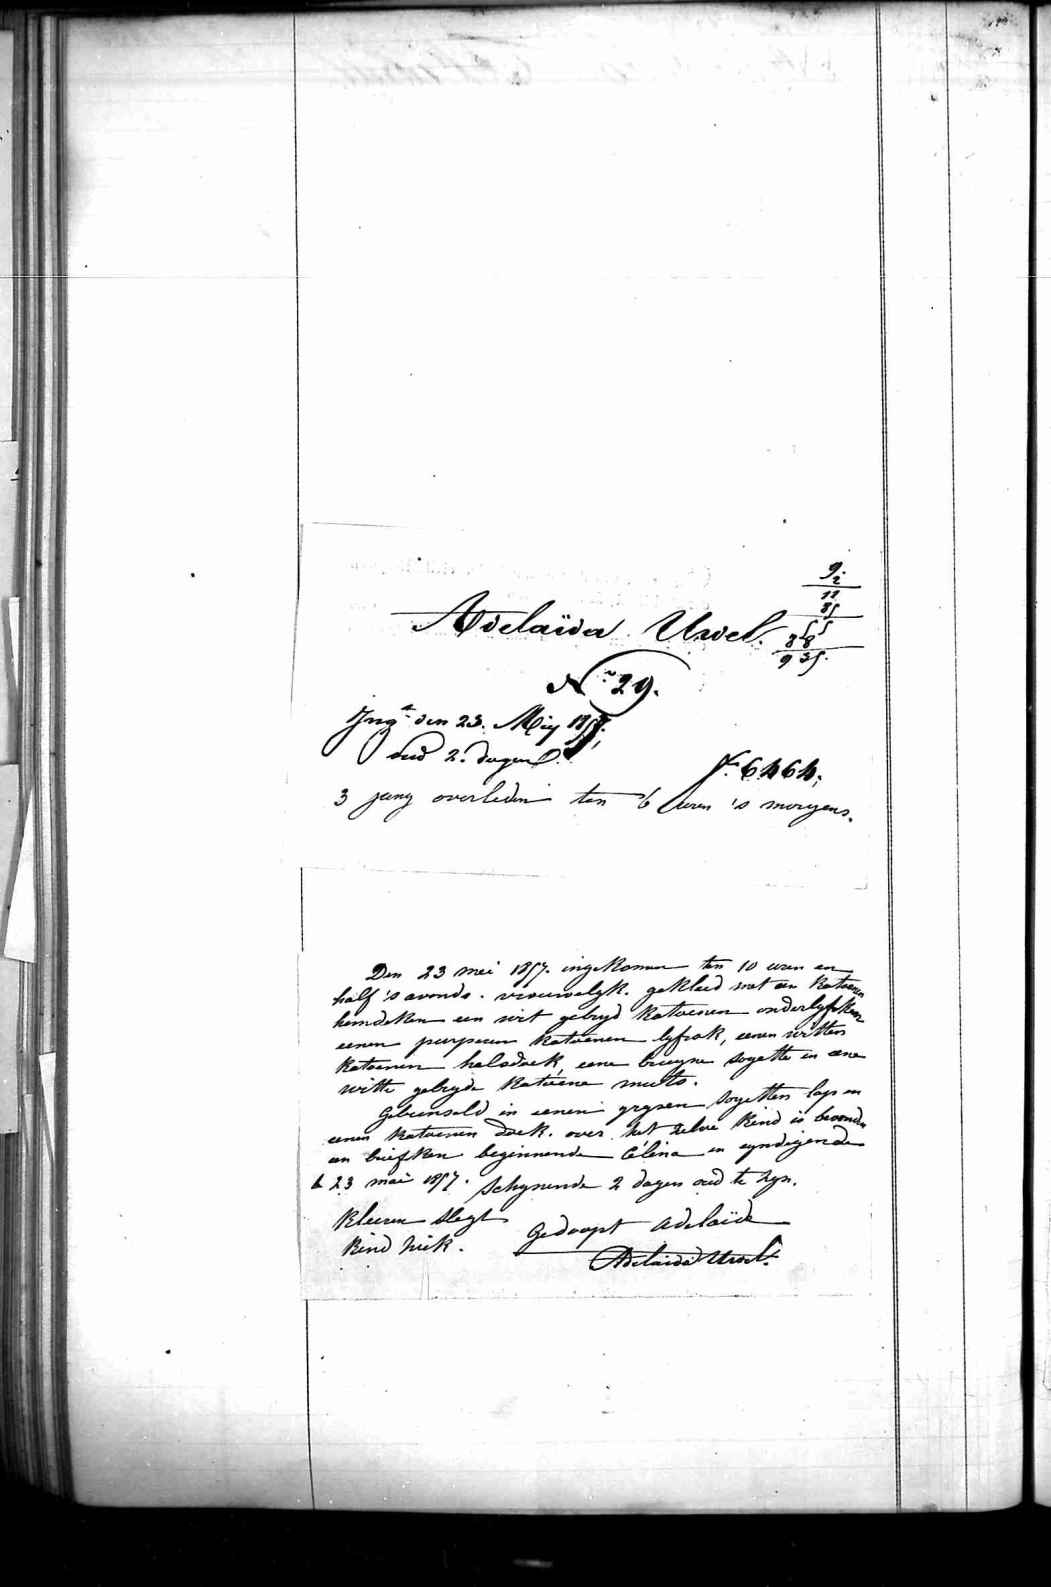 9
2
11
85
55
88
935.
Adelaïda Ursel.
N° 29.
Ingt den 23. Mey 1857.
oud 2. dagen
N° 6464;
3 juny overleden ten 6 uren 's morgens.
Den 23 mei 1857. ingekomen ten 10 uren en
half 's avonds. vrouwelyk. gekleed met een katoenen
hemdeken een wit gebryd katoenen onderlyfken
eenen purperen katoenen lyfrok, eenen witten
katoenen halsdoek, eene bruyne sogette en eene
witte gebryde katoene muts.
Gebunseld in eenen grysen sogetten lap en
eenen katoenen doek. over het zelve kind is bevonden
een briefken beginnende Célina en eyndigende
23 mai 1857. Schynende 2 dagen oud te zyn.
Kleeren slegt
Kind ziek.
Gedoopt Adelaïde
Adelaïda Ursel.